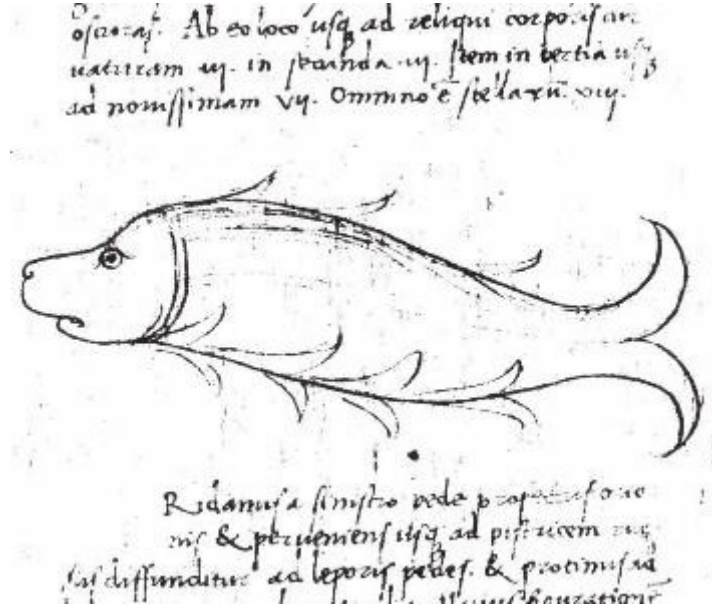 oscioras. Ab eo loco usq ad reliqui corporis cur
uaturam uj. in secunda uj. Item in tertia usq
ad nouissimam Vij. Omnino ē stellarū. xiij.
Ridanus a sinistro pede profectus orio
nis & perueniens usq ad pistricem rur
sus diffunditur ad leporis pedes. & protinus ad
huius figurationē